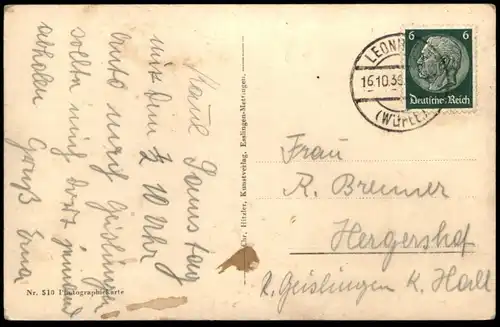 Kaue Samstag
mit dem ½ 10 Uhr
Auto nach Geislingen
sollte mich dort jemand
abholen Gruß Erna
Nr. 510 Photographiekarte
Chr. Hitzler, Kunstverlag, Esslingen-Mettingen.
LEON
16.10.36
(WÜRTT.)
6 6
Deutsches Reich
Frau
R. Brenner
Hergershof
Geislingen K. Hall